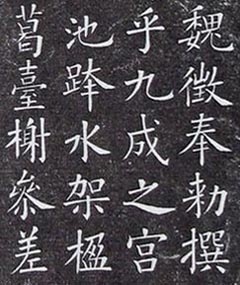 魏徵奉勅撰
乎九成之宫
池跨水架楹
葛臺榭叅差